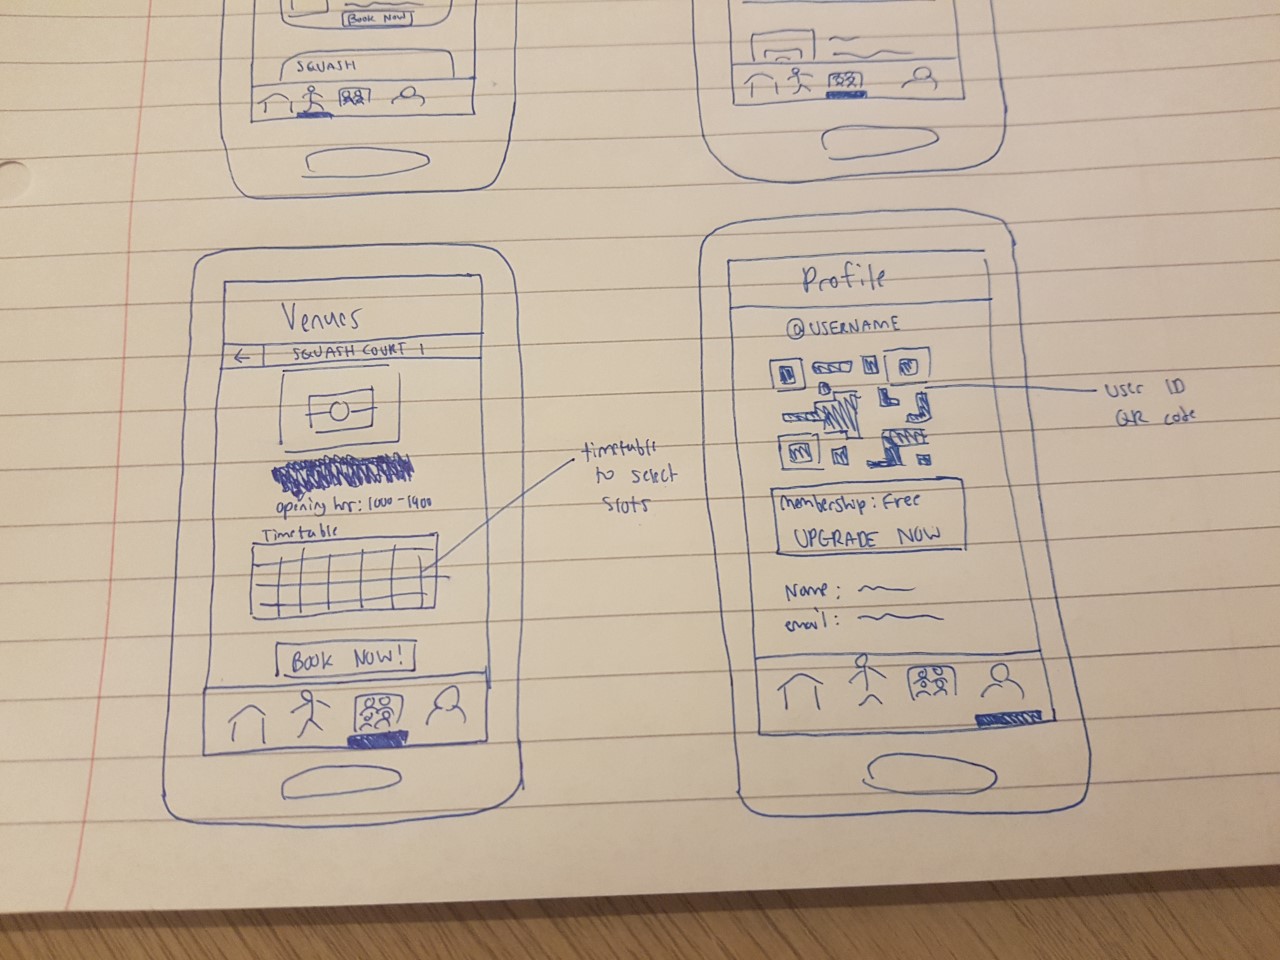 Book Now
SQUASH
Venues
←
SQUASH COURT 1
opening hr: 1000-1900
Timetable
BOOK NOW!
timetable
to select
slots
Profile
@USERNAME
membership: Free
UPGRADE NOW
Name:
email:
User ID
QR code